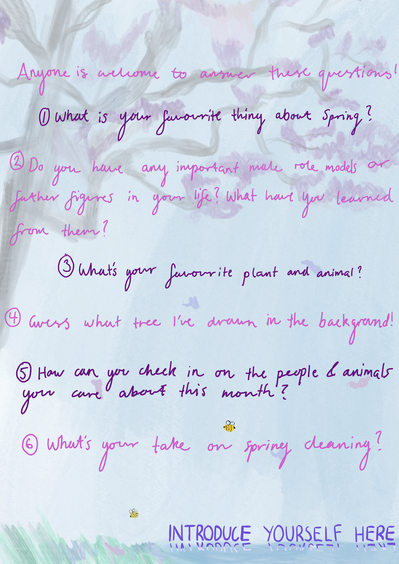 Anyone is welcome to answer these questions!
① What is your favourite thing about Spring?
② Do you have any important male role models or
father figures in your life? What have you learned
from them?
③ What's your favourite plant and animal?
④ Guess what tree I've drawn in the background!
⑤ How can you check in on the people & animals
you care about this month?
⑥ What's your take on spring cleaning?
INTRODUCE YOURSELF HERE